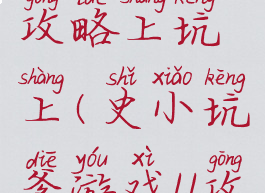 攻略上坑
shàng shǐ xiǎo kēng
上(史小坑
diē yóu xì gōng
爹游戏儿攻